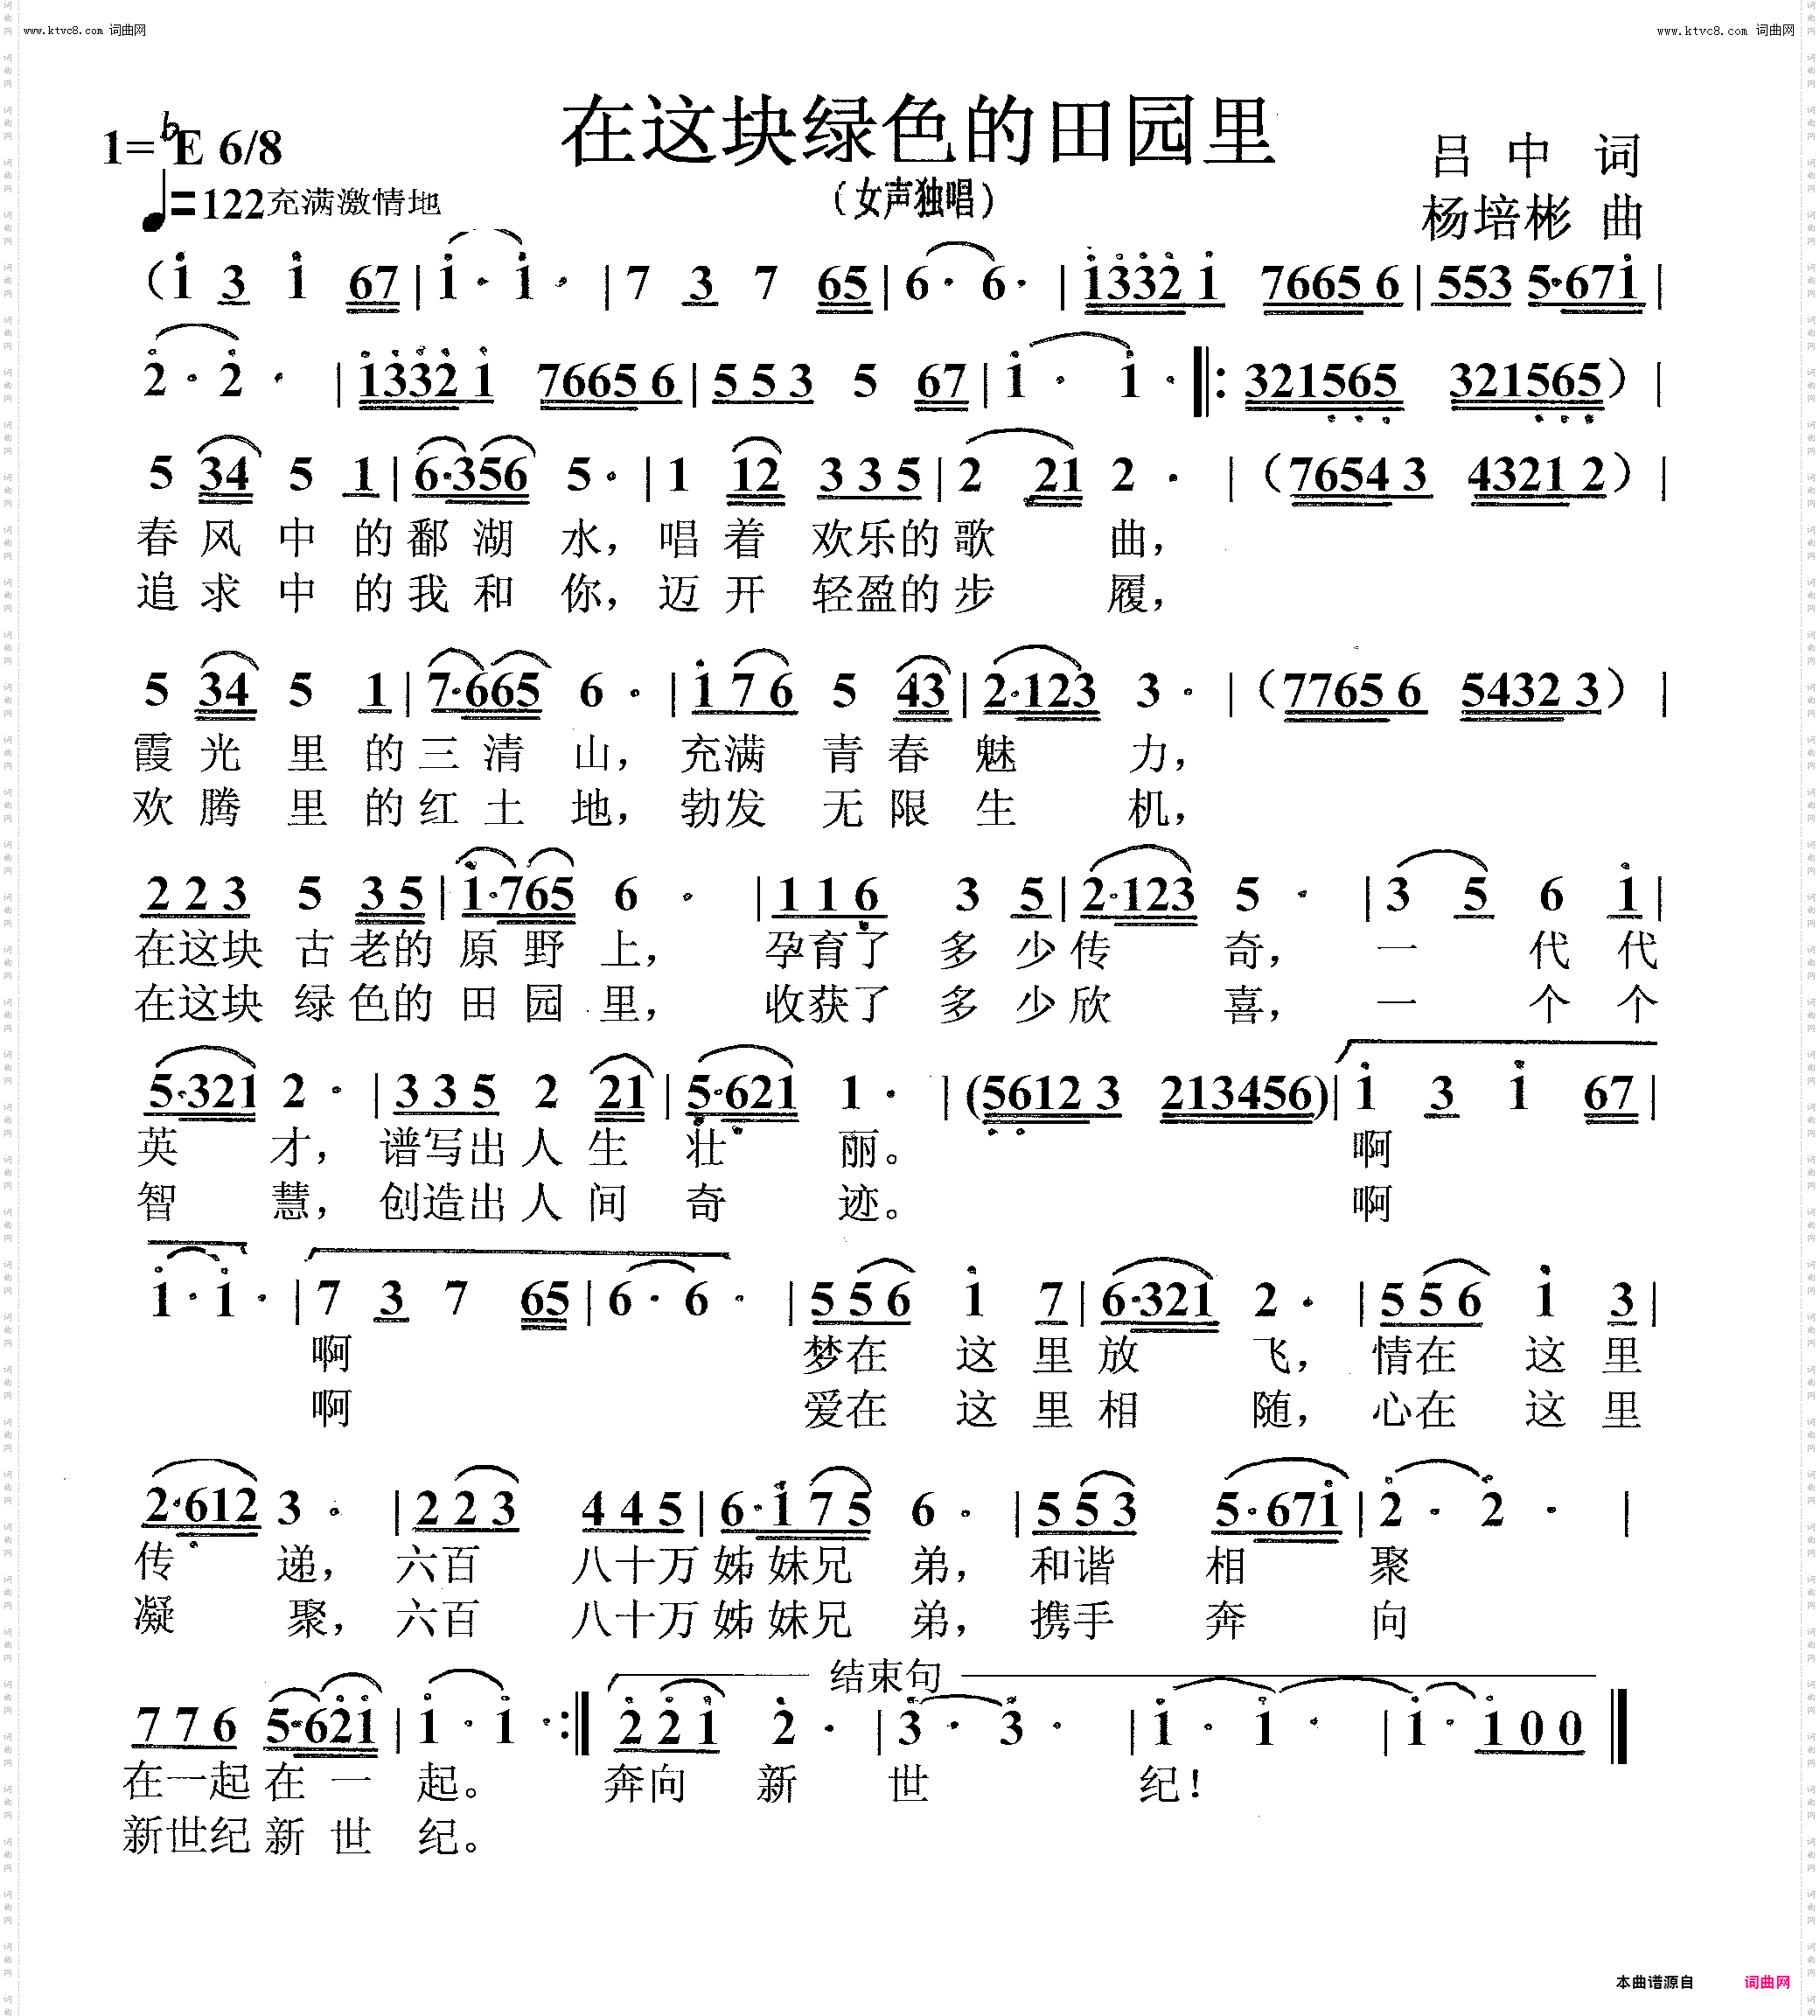 www.ktvc8.com 词曲网
www.ktvc8.com 词曲网
在这块绿色的田园里
1=bE 6/8
吕中 词
♩=122充满激情地
（女声独唱）
杨培彬 曲
（i 3 i 67 | i · i · | 7 3 7 65 | 6 · 6 · | i332 i 7665 6 | 553 5·67i |
2 · 2 · | i332 i 7665 6 | 5 5 3 5 67 | i · i · ‖: 321565 321565） |
5 34 5 1 | 6·356 5 · | 1 12 3 3 5 | 2 21 2 · | （7654 3 4321 2） |
春 风 中 的 鄱 湖 水， 唱 着 欢乐的 歌 曲，
追 求 中 的 我 和 你， 迈 开 轻盈的 步 履，
5 34 5 1 | 7·665 6 · | i 7 6 5 43 | 2·123 3 · | （7765 6 5432 3） |
霞 光 里 的 三 清 山， 充满 青 春 魅 力，
欢 腾 里 的 红 土 地， 勃发 无 限 生 机，
2 2 3 5 3 5 | i·765 6 · | 1 1 6 3 5 | 2·123 5 · | 3 5 6 i |
在这块 古 老的 原 野 上， 孕育了 多 少 传 奇， 一 代 代
在这块 绿 色的 田 园 里， 收获了 多 少 欣 喜， 一 个 个
5·321 2 · | 3 3 5 2 21 | 5·621 1 · | (5612 3 213456) | i 3 i 67 |
英 才， 谱写出 人 生 壮 丽。 啊
智 慧， 创造出 人 间 奇 迹。 啊
i · i · | 7 3 7 65 | 6 · 6 · | 5 5 6 i 7 | 6·321 2 · | 5 5 6 i 3 |
啊 梦在 这 里 放 飞， 情在 这 里
啊 爱在 这 里 相 随， 心在 这 里
2·612 3 · | 2 2 3 4 4 5 | 6·i 7 5 6 · | 5 5 3 5·67i | 2 · 2 · |
传 递， 六百 八十万 姊 妹兄 弟， 和谐 相 聚
凝 聚， 六百 八十万 姊 妹兄 弟， 携手 奔 向
结束句
7 7 6 5·62i | i · i · :‖ 2 2 i 2 · | 3 · 3 · | i · i · | i · i 0 0 ‖
在一起 在 一 起。 奔向 新 世 纪！
新世纪 新 世 纪。
本曲谱源自 词曲网